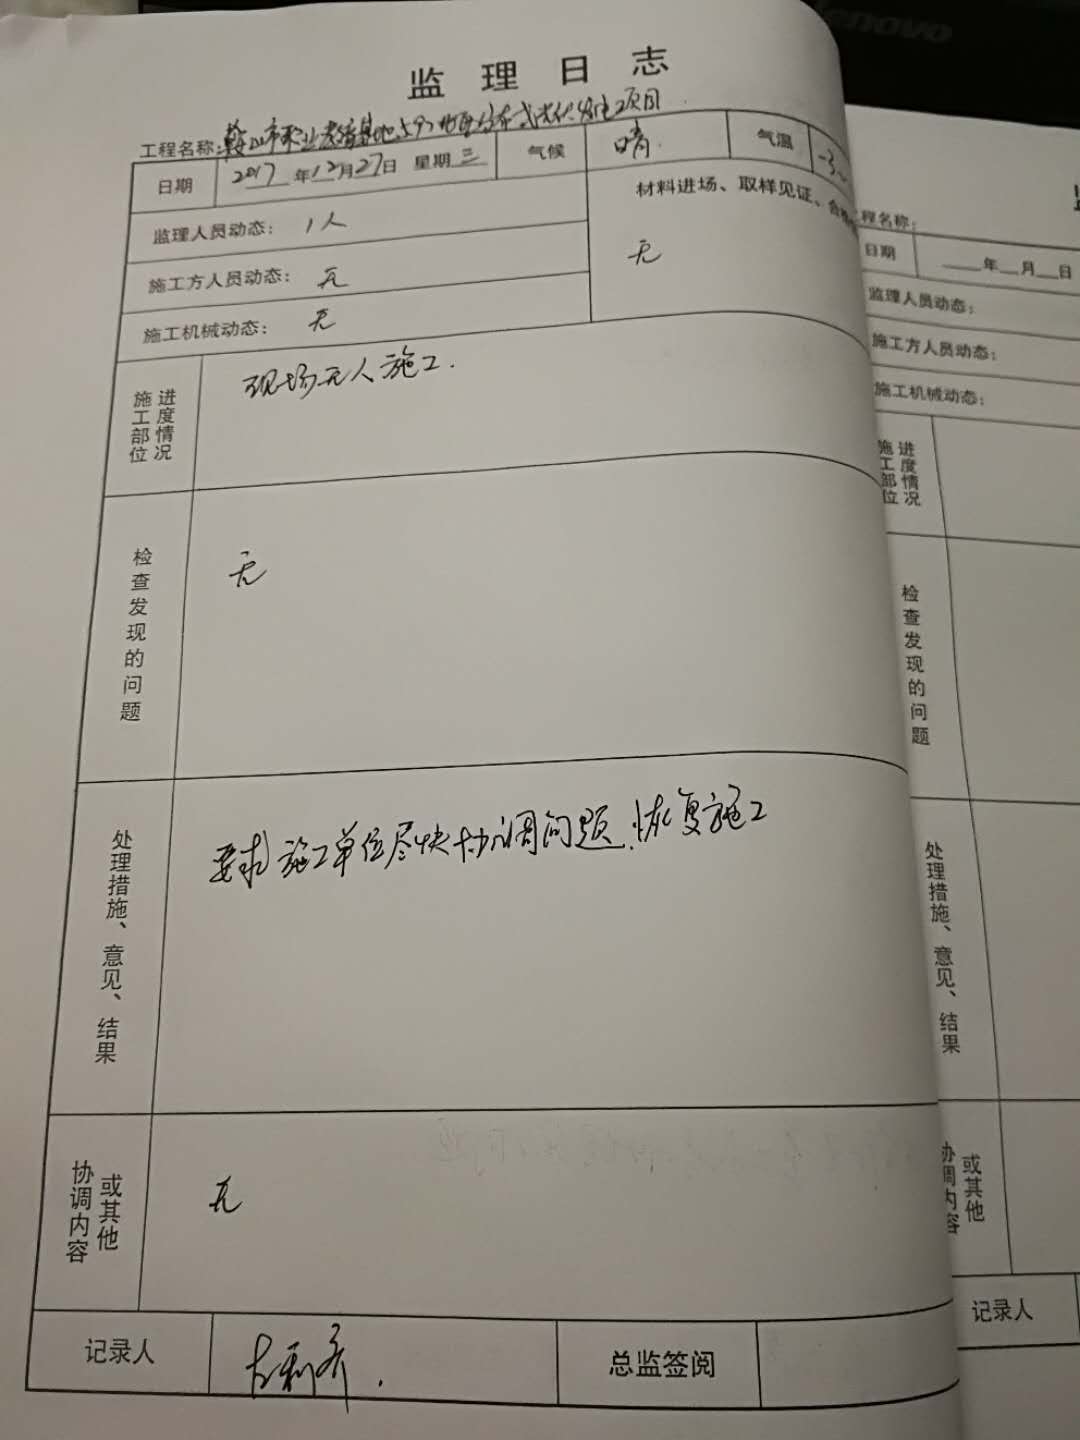 lenovo
监理日志
工程名称:鞍山市职业教育基地5.9兆瓦分布式光伏发电项目
日期 2017年12月27日 星期三 气候 晴 气温 -3~
监理人员动态: 1人
材料进场、取样见证、合
无
施工方人员动态: 无
施工机械动态: 无
施工部位进度情况 现场无人施工.
检查发现的问题 无
处理措施、意见、结果 要求施工单位尽快协调问题.恢复施工
协调内容或其他 无
记录人 总监签阅
程名称:
日期 年 月 日
监理人员动态:
施工方人员动态:
施工机械动态:
施工部位进度情况
检查发现的问题
处理措施、意见、结果
协调内容或其他
记录人